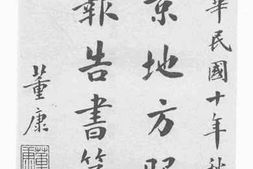 華民國十年秋
京地方
報告書第
董康
董康